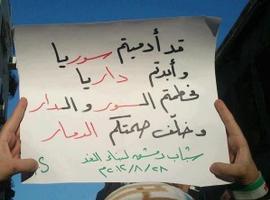 قد أدميتم سوريا
و أبدتم داريا
فحطمتم السور و الدار
و خلّف صمتكم الدمار
شباب دمشق لبناء الغد
٢٠١٢/٨/٢٨